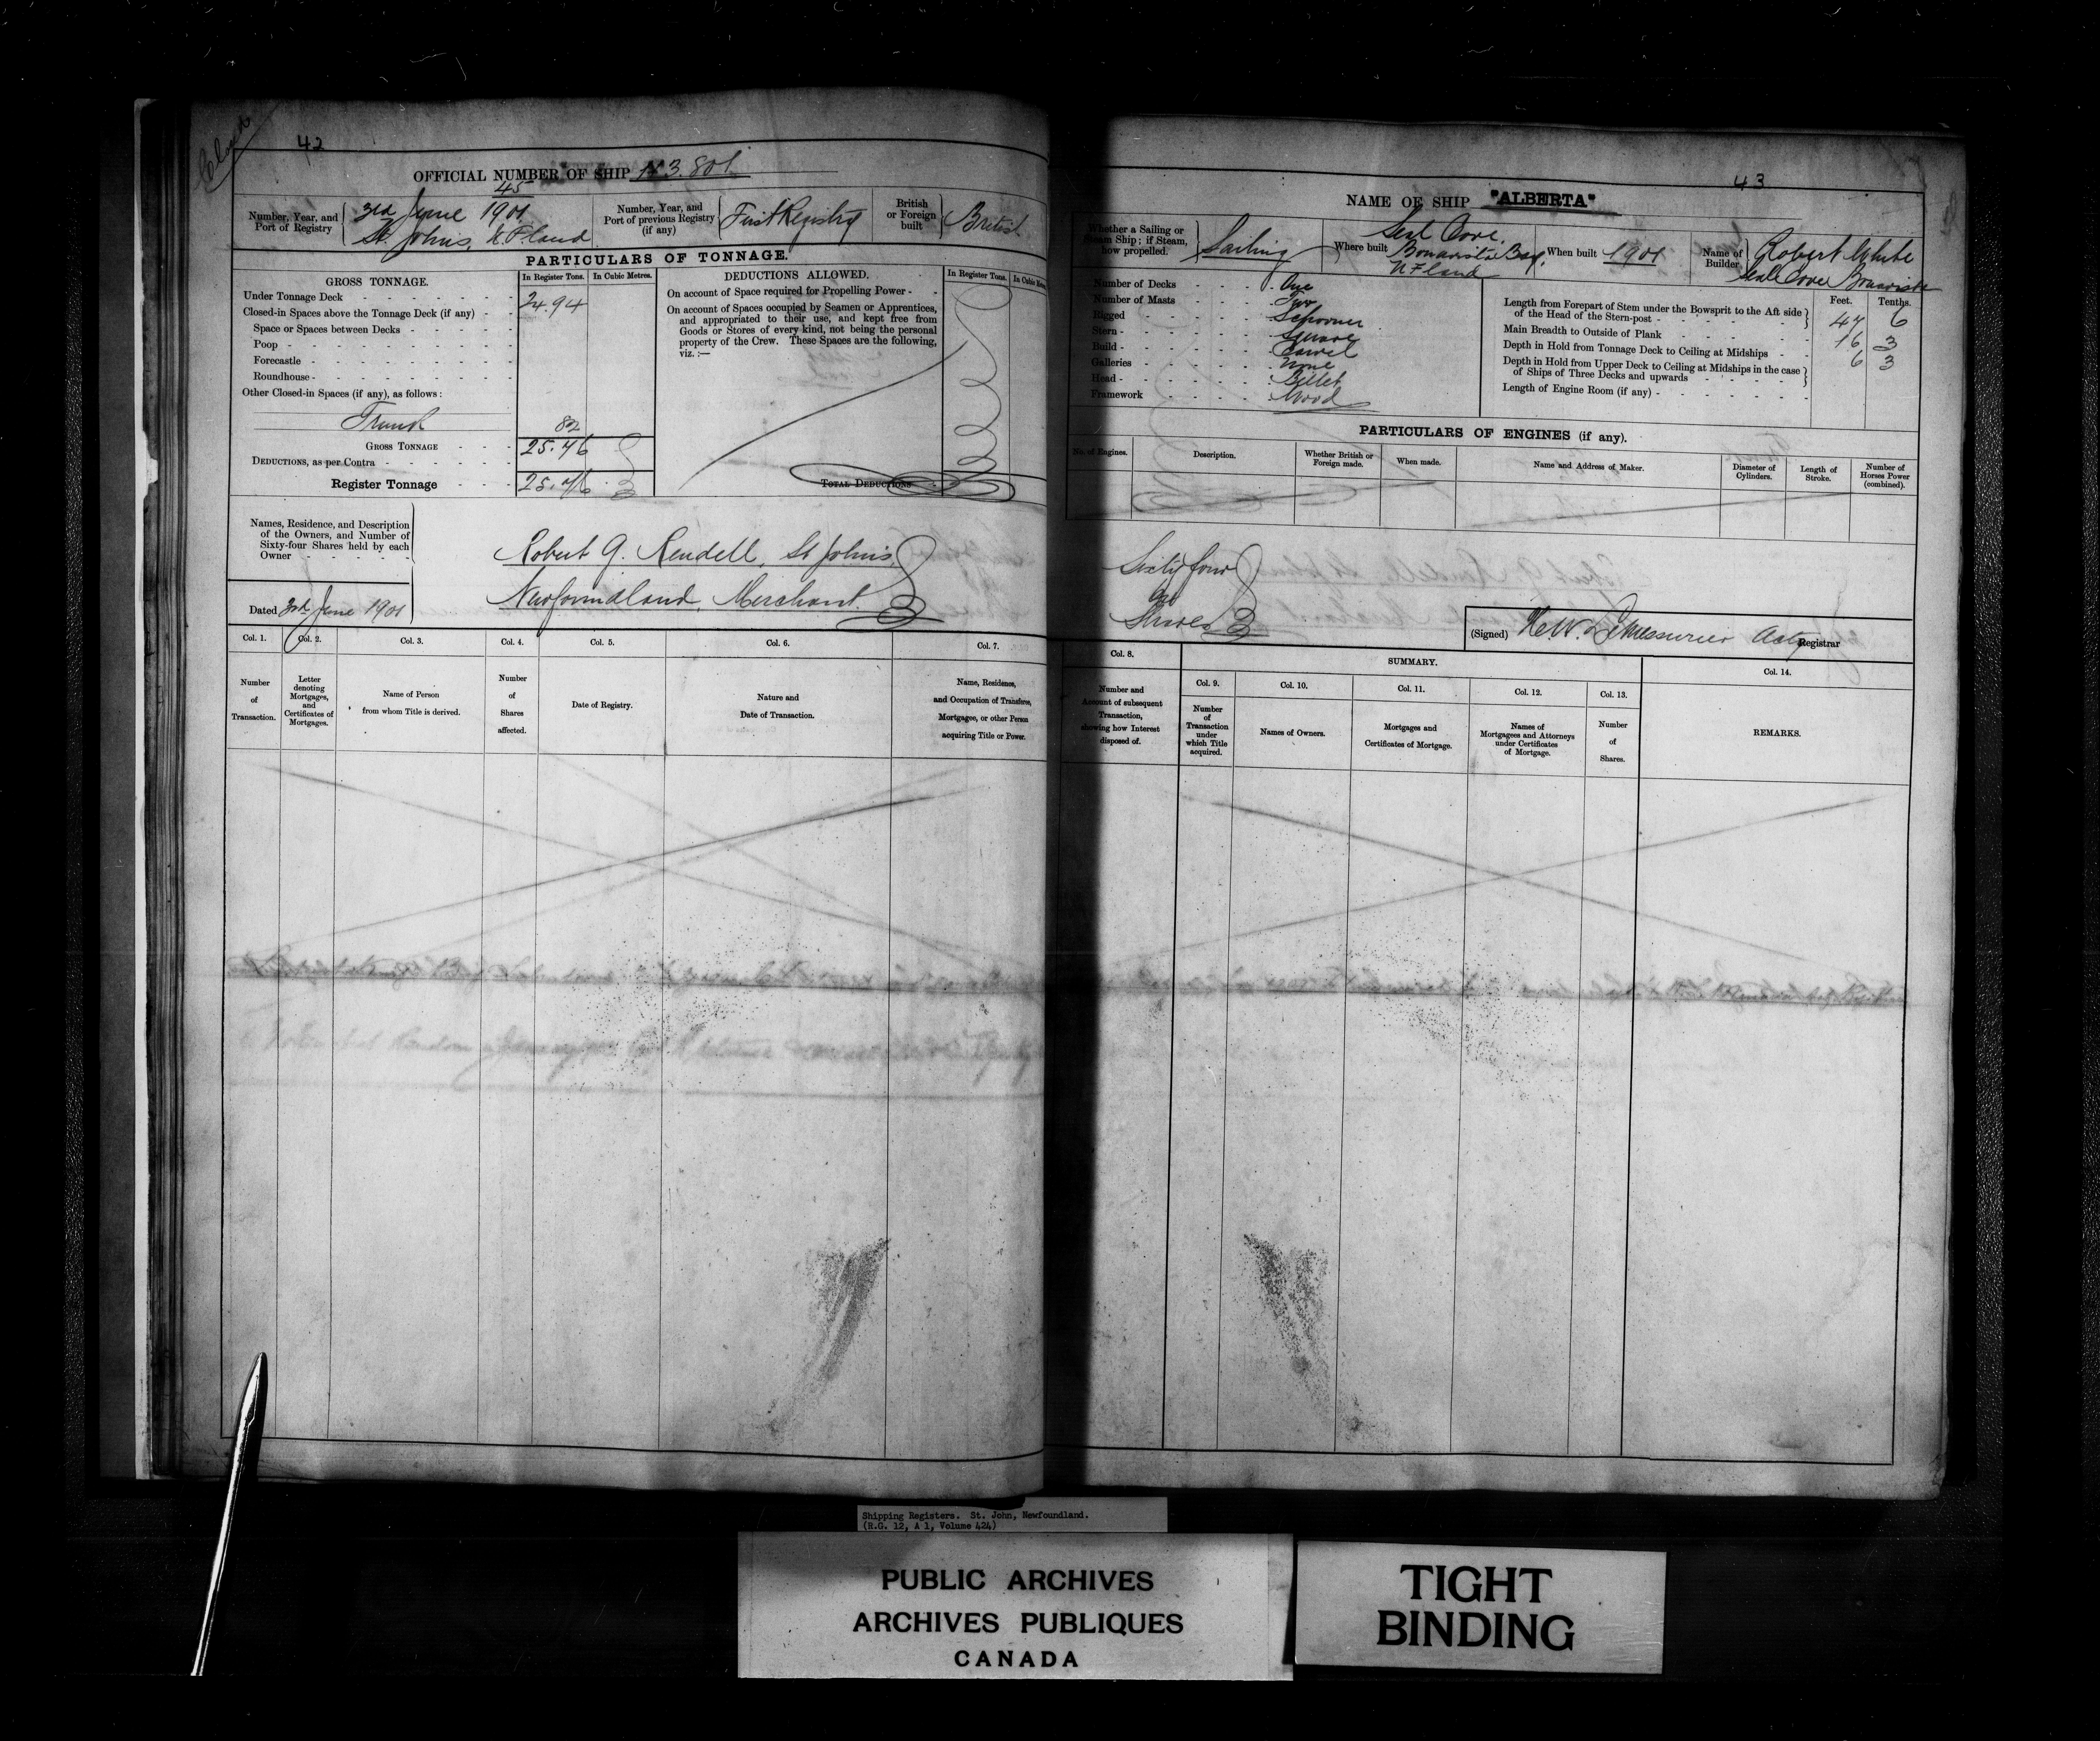 42
Closed
OFFICIAL NUMBER OF SHIP 113.801
Number, Year, and Port of Registry
45
3rd June 1901
St. Johns, N.F.land
Number, Year, and Port of previous Registry (if any)
First Registry
British or Foreign built
British
PARTICULARS OF TONNAGE.
GROSS TONNAGE.
In Register Tons.
In Cubic Metres.
Under Tonnage Deck 24.94
Closed-in Spaces above the Tonnage Deck (if any)
Space or Spaces between Decks
Poop
Forecastle
Roundhouse
Other Closed-in Spaces (if any), as follows:
Trunk 82
GROSS TONNAGE 25.76
DEDUCTIONS, as per Contra
Register Tonnage 25.76
DEDUCTIONS ALLOWED.
In Register Tons.
On account of Space required for Propelling Power
On account of Spaces occupied by Seamen or Apprentices,
and appropriated to their use, and kept free from
Goods or Stores of every kind, not being the personal
property of the Crew. These Spaces are the following,
viz.:—
TOTAL DEDUCTIONS
Names, Residence, and Description
of the Owners, and Number of
Sixty-four Shares held by each
Owner
Dated 3rd June 1901
Robert G. Rendell, St Johns,
Newfoundland, Merchant.
Col. 1.
Number of Transaction.
Col. 2.
Letter denoting Mortgages, and Certificates of Mortgages.
Col. 3.
Name of Person from whom Title is derived.
Col. 4.
Number of Shares affected.
Col. 5.
Date of Registry.
Col. 6.
Nature and Date of Transaction.
Col. 7.
Name, Residence,
and Occupation of Transferee,
Mortgagee, or other Person
acquiring Title or Power.
43
NAME OF SHIP "ALBERTA"
Whether a Sailing or
Steam Ship; if Steam,
how propelled.
Sailing
Where built
Seal Cove,
Bonavista Bay,
N F land
When built 1901
Name of Builder
Robert White
Seal Cove Bonavista
Number of Decks One
Number of Masts Two
Rigged Schooner
Stern Square
Build Carvel
Galleries None
Head Billet
Framework Wood
Feet. Tenths.
Length from Forepart of Stem under the Bowsprit to the Aft side
of the Head of the Stern-post 47 6
Main Breadth to Outside of Plank 16 3
Depth in Hold from Tonnage Deck to Ceiling at Midships 6 3
Depth in Hold from Upper Deck to Ceiling at Midships in the case
of Ships of Three Decks and upwards
Length of Engine Room (if any)
PARTICULARS OF ENGINES (if any).
No. of Engines.
Description.
Whether British or Foreign made.
When made.
Name and Address of Maker.
Diameter of Cylinders.
Length of Stroke.
Number of Horses Power (combined).
Sixty four
Shares
(Signed) H.W. LeMessurier Actg Registrar
Col. 8.
Number and
Account of subsequent
Transaction,
showing how Interest
disposed of.
SUMMARY.
Col. 9.
Number of Transaction under which Title acquired.
Col. 10.
Names of Owners.
Col. 11.
Mortgages and Certificates of Mortgage.
Col. 12.
Names of Mortgagees and Attorneys under Certificates of Mortgage.
Col. 13.
Number of Shares.
Col. 14.
REMARKS.
Shipping Registers. St. John, Newfoundland.
(R.G. 12, A 1, Volume 424)
PUBLIC ARCHIVES
ARCHIVES PUBLIQUES
CANADA
TIGHT
BINDING